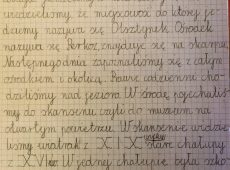 wiedzieliśmy że miejscowość do której je-
dziemy nazywa się Olsztynek. Ośrodek
nazywa się Perkoz, znajduje się na skarpie.
Następnego dnia zapoznaliśmy się z całym
ośrodkiem i okolicą. Prawie codziennie cho-
dziliśmy nad jezioro. W środę pojechaliś-
my do skansenu czyli do muzeum na
otwartym powietrzu. W skansenie widzie-
liśmy wiatrak z XIX wieku stare chałupy
z XVI w. W jednej chałupie była szko-